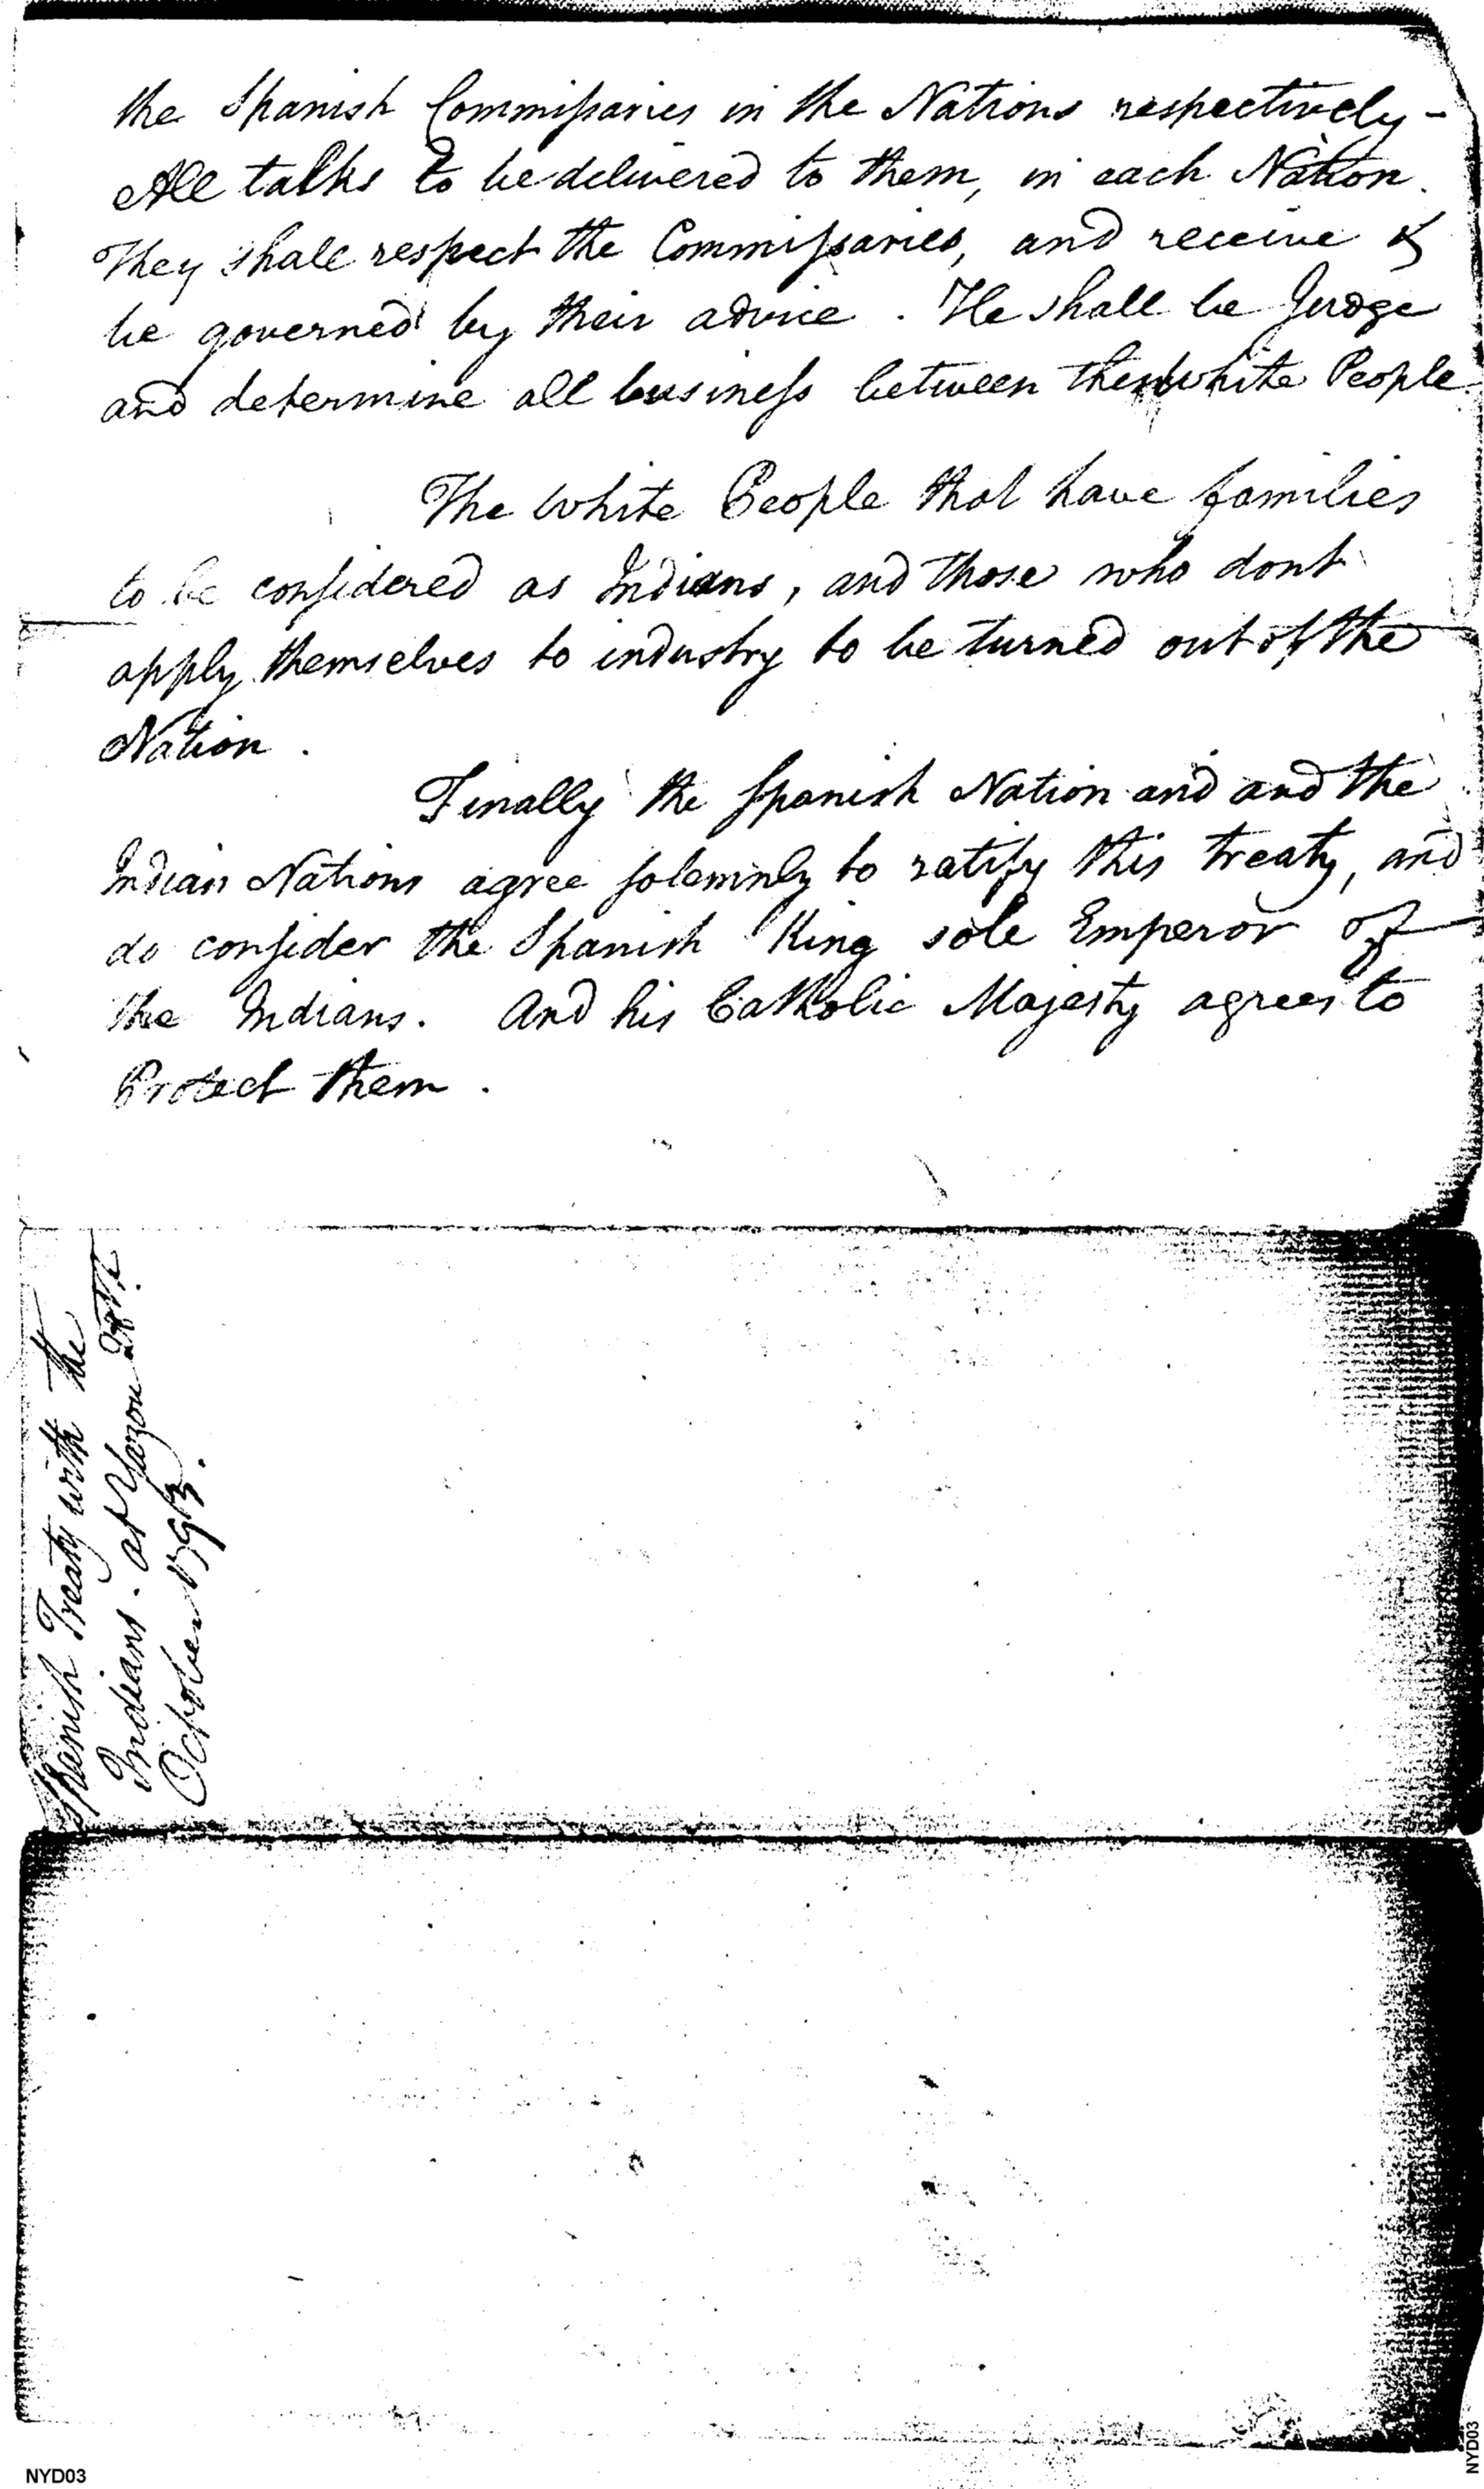 the Spanish Commissaries in the Nations respectively -
All talks to be delivered to them, in each Nation.
They shall respect the Commissaries, and receive &
be governed by their advice. He shall be Judge
and determine all business between the white People.
The White People that have families
to be considered as Indians, and those who dont
apply themselves to industry to be turned out of the
Nation.
Finally the Spanish Nation and and the
Indian Nations agree solemnly to ratify this treaty, and
do consider the Spanish King sole Emperor of
the Indians. And his Catholic Majesty agrees to
Protect them.
Spanish Treaty with the
Indians. at Yazou
October 1793.
NYD03
NYD03